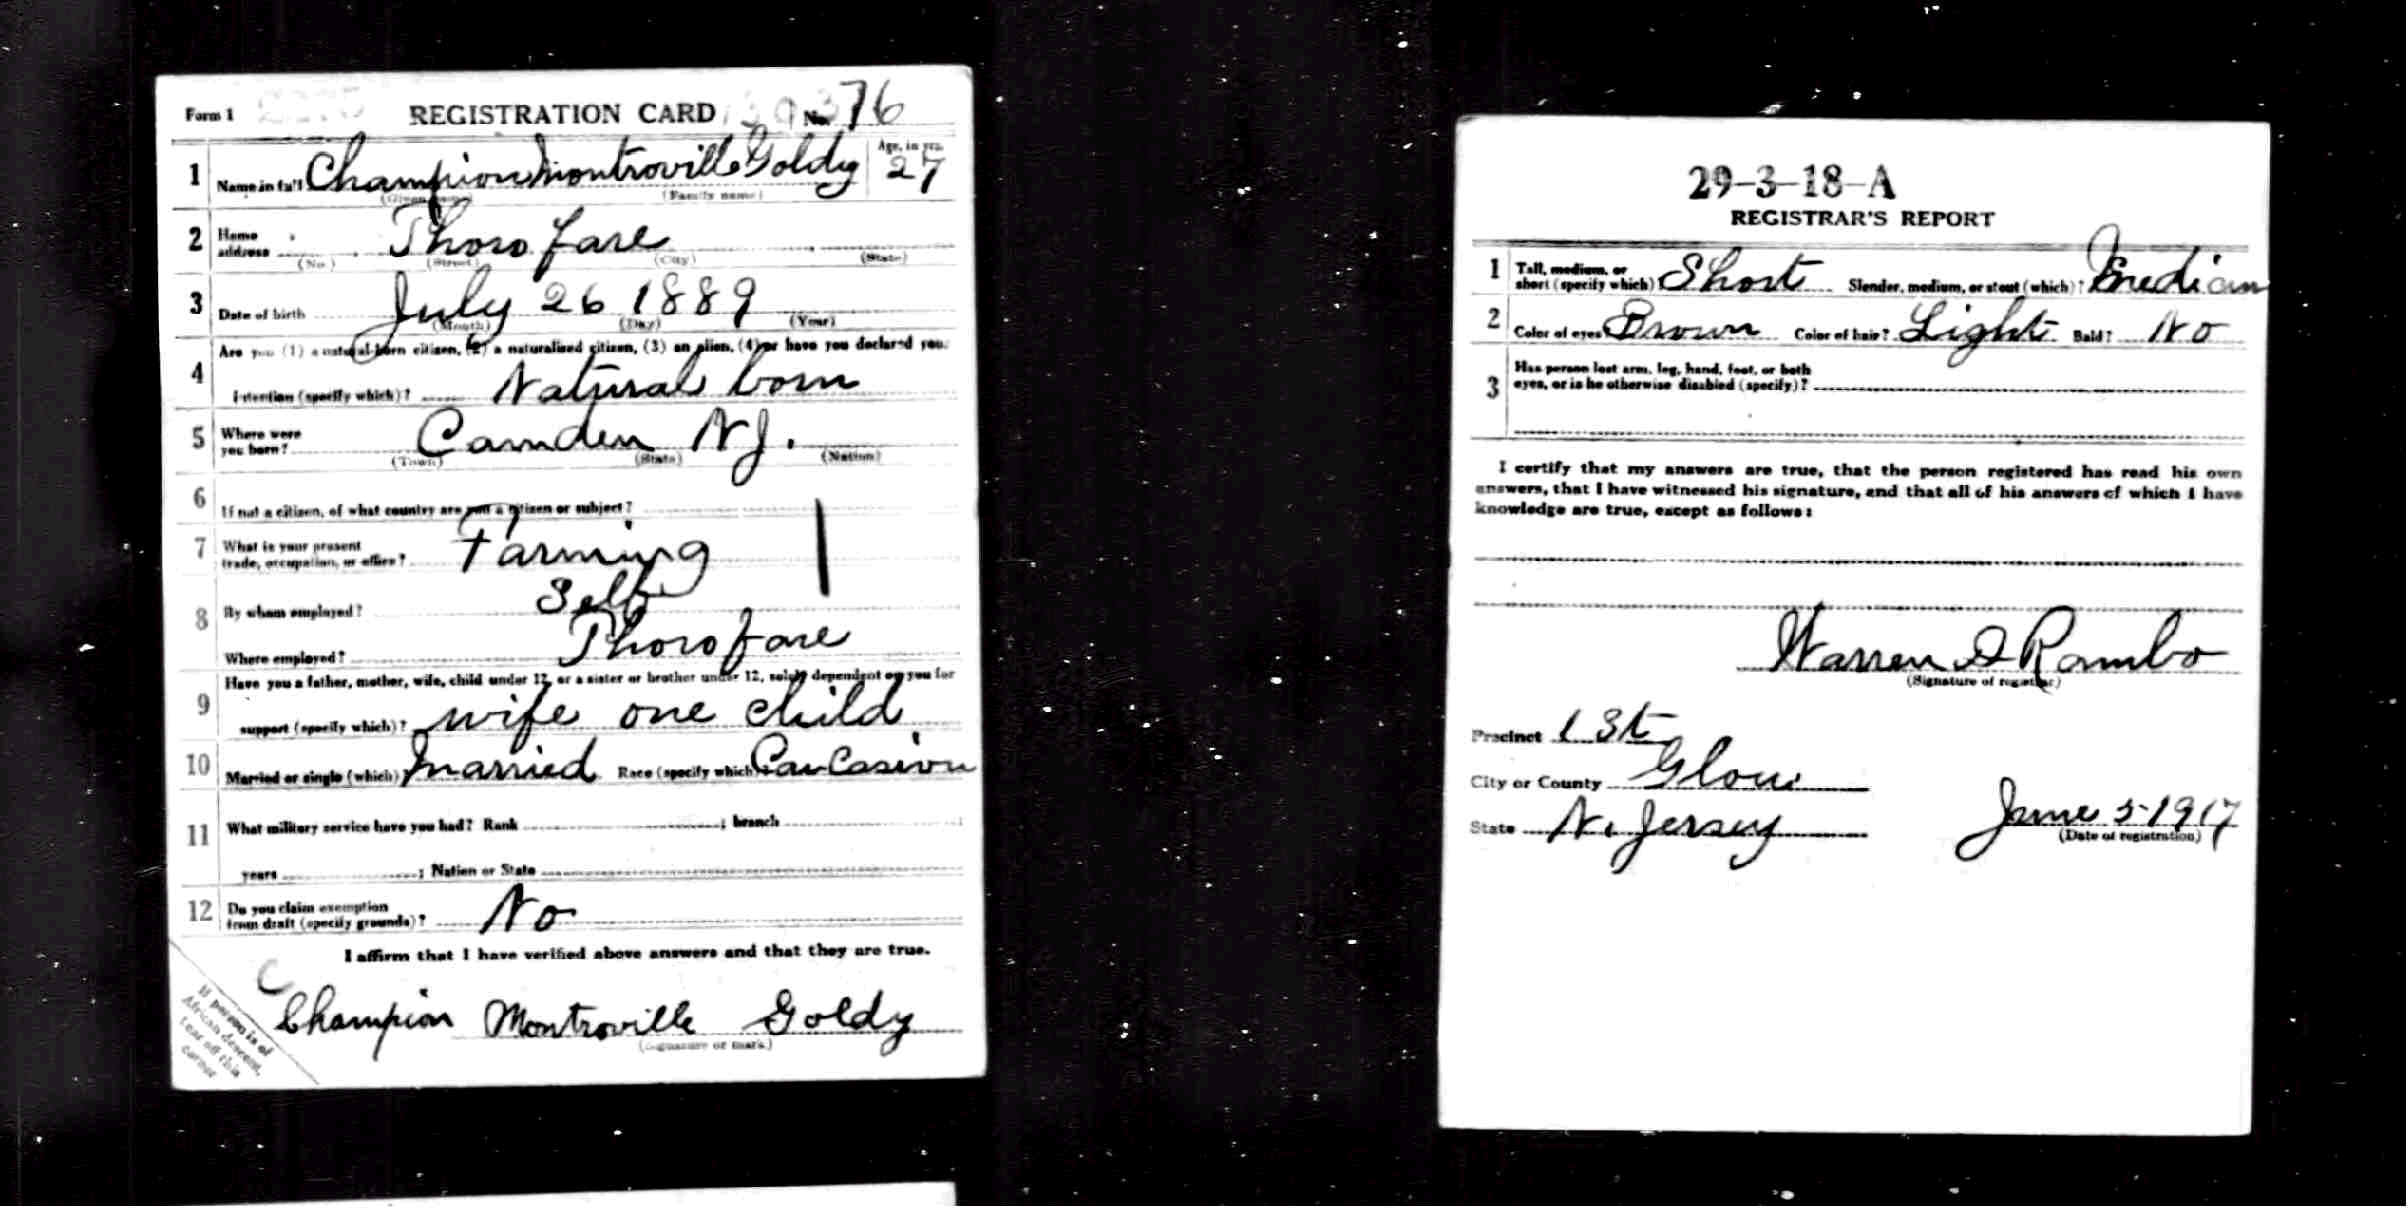 Form 1 REGISTRATION CARD No. 76
1 Name in full Champion Montroville Goldy Age, in yrs. 27
(Given name) (Family name)
2 Home address Thorofare
(No.) (Street) (City) (State)
3 Date of birth July 26 1889
(Month) (Day) (Year)
4 Are you (1) a natural-born citizen, (2) a naturalized citizen, (3) an alien, (4) or have you declared your
intention (specify which)? Natural born
5 Where were you born? Camden N.J.
(Town) (State) (Nation)
6 If not a citizen, of what country are you a citizen or subject?
7 What is your present trade, occupation, or office? Farming
8 By whom employed? Self
Where employed? Thorofare
9 Have you a father, mother, wife, child under 12, or a sister or brother under 12, solely dependent on you for
support (specify which)? wife one child
10 Married or single (which)? Married Race (specify which)? Caucasion
11 What military service have you had? Rank ; branch
years ; Nation or State
12 Do you claim exemption from draft (specify grounds)? No
I affirm that I have verified above answers and that they are true.
Champion Montroville Goldy
(Signature or mark)
If person is of
African descent,
tear off this
corner
29-3-18-A
REGISTRAR'S REPORT
1 Tall, medium, or short (specify which)? Short Slender, medium, or stout (which)? Median
2 Color of eyes? Brown Color of hair? Light Bald? No
3 Has person lost arm, leg, hand, foot, or both
eyes, or is he otherwise disabled (specify)?
I certify that my answers are true, that the person registered has read his own
answers, that I have witnessed his signature, and that all of his answers of which I have
knowledge are true, except as follows:
Warren S Rambo
(Signature of registrar)
Precinct 1st
City or County Glou.
State N. Jersey
June 5-1917
(Date of registration)